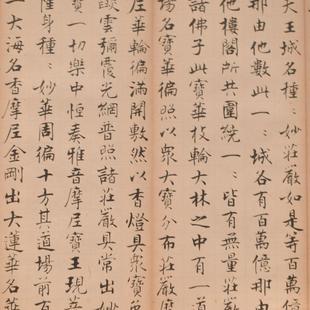 大王城名種〻妙莊嚴如是等百萬億
那由他數此一〻城各有百萬億那由
他樓閣所共圍繞一〻皆有無量莊嚴
諸佛子此寶華枝輪大林之中有一道
場名寶華徧照以衆大寶分布莊嚴摩
尼華輪徧滿開敷然以香燈具衆寶
燄雲彌覆光網普照諸莊嚴具常出妙
寶一切樂中恒奏雅音摩尼寶王現菩
薩身種〻妙華周徧十方其道場前有
一大海名香摩尼金剛出大蓮華名華